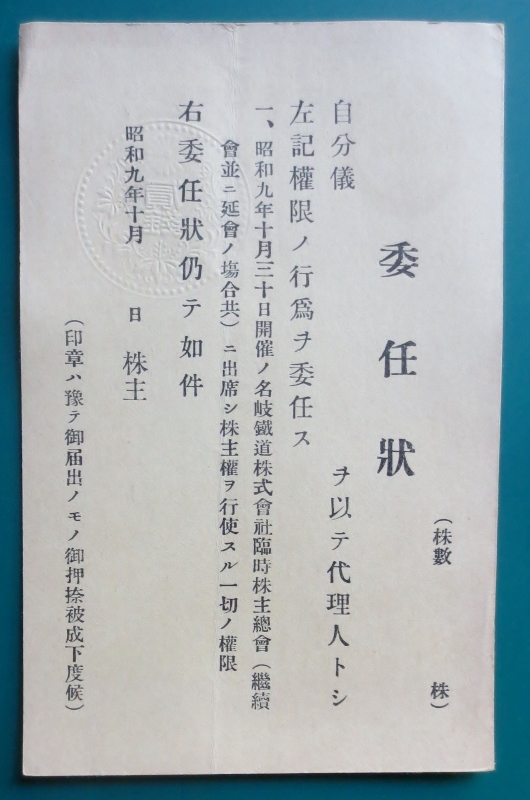 委任狀
（株數　株）
自分儀　ヲ以テ代理人トシ
左記權限ノ行爲ヲ委任ス
一、昭和九年十月三十日開催ノ名岐鐵道株式會社臨時株主總會（繼續
會並ニ延會ノ塲合共）ニ出席シ株主權ヲ行使スル一切ノ權限
右委任狀仍テ如件
昭和九年十月　日　株主
（印章ハ豫テ御届出ノモノ御押捺被成下度候）